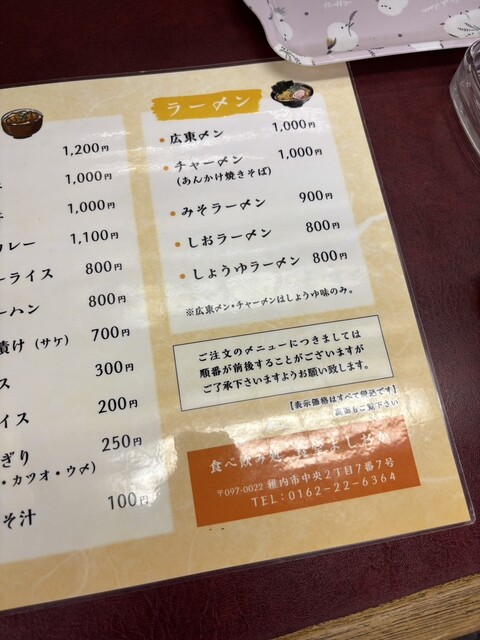 1,200円
1,000円
1,000円
カレー 1,100円
ーライス 800円
ーハン 800円
漬け（サケ） 700円
ス 300円
イス 200円
ぎり 250円
・カツオ・ウメ）
そ汁 100円
ラーメン
広東メン 1,000円
チャーメン 1,000円
（あんかけ焼きそば）
みそラーメン 900円
しおラーメン 800円
しょうゆラーメン 800円
※広東メン・チャーメンはしょうゆ味のみ。
ご注文のメニューにつきましては
順番が前後することがございますが
ご了承下さいますようお願い致します。
【表示価格はすべて税込です】
裏面もご覧下さい
食べ飲み処
〒097-0022 稚内市中央2丁目7番7号
TEL:0162-22-6364